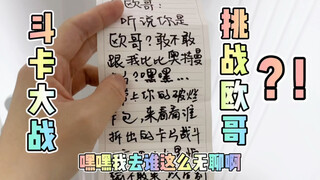 斗卡大战
挑战欧哥
?!
欧哥:
听说你是
欧哥?敢不敢
跟我比比奥特曼
??嘿嘿...
卡你的破烂
包,来看看谁
拆出的卡片战斗
嘿嘿我去谁这么无聊啊